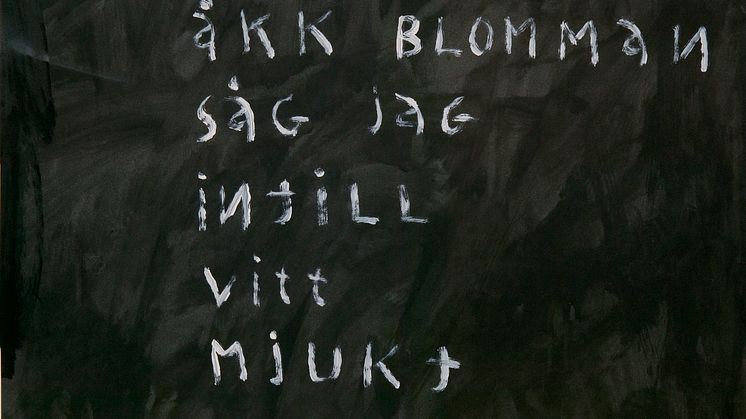 åKK BLOMMaN
SåG jaG
iNtiLL
Vitt
MjUKt